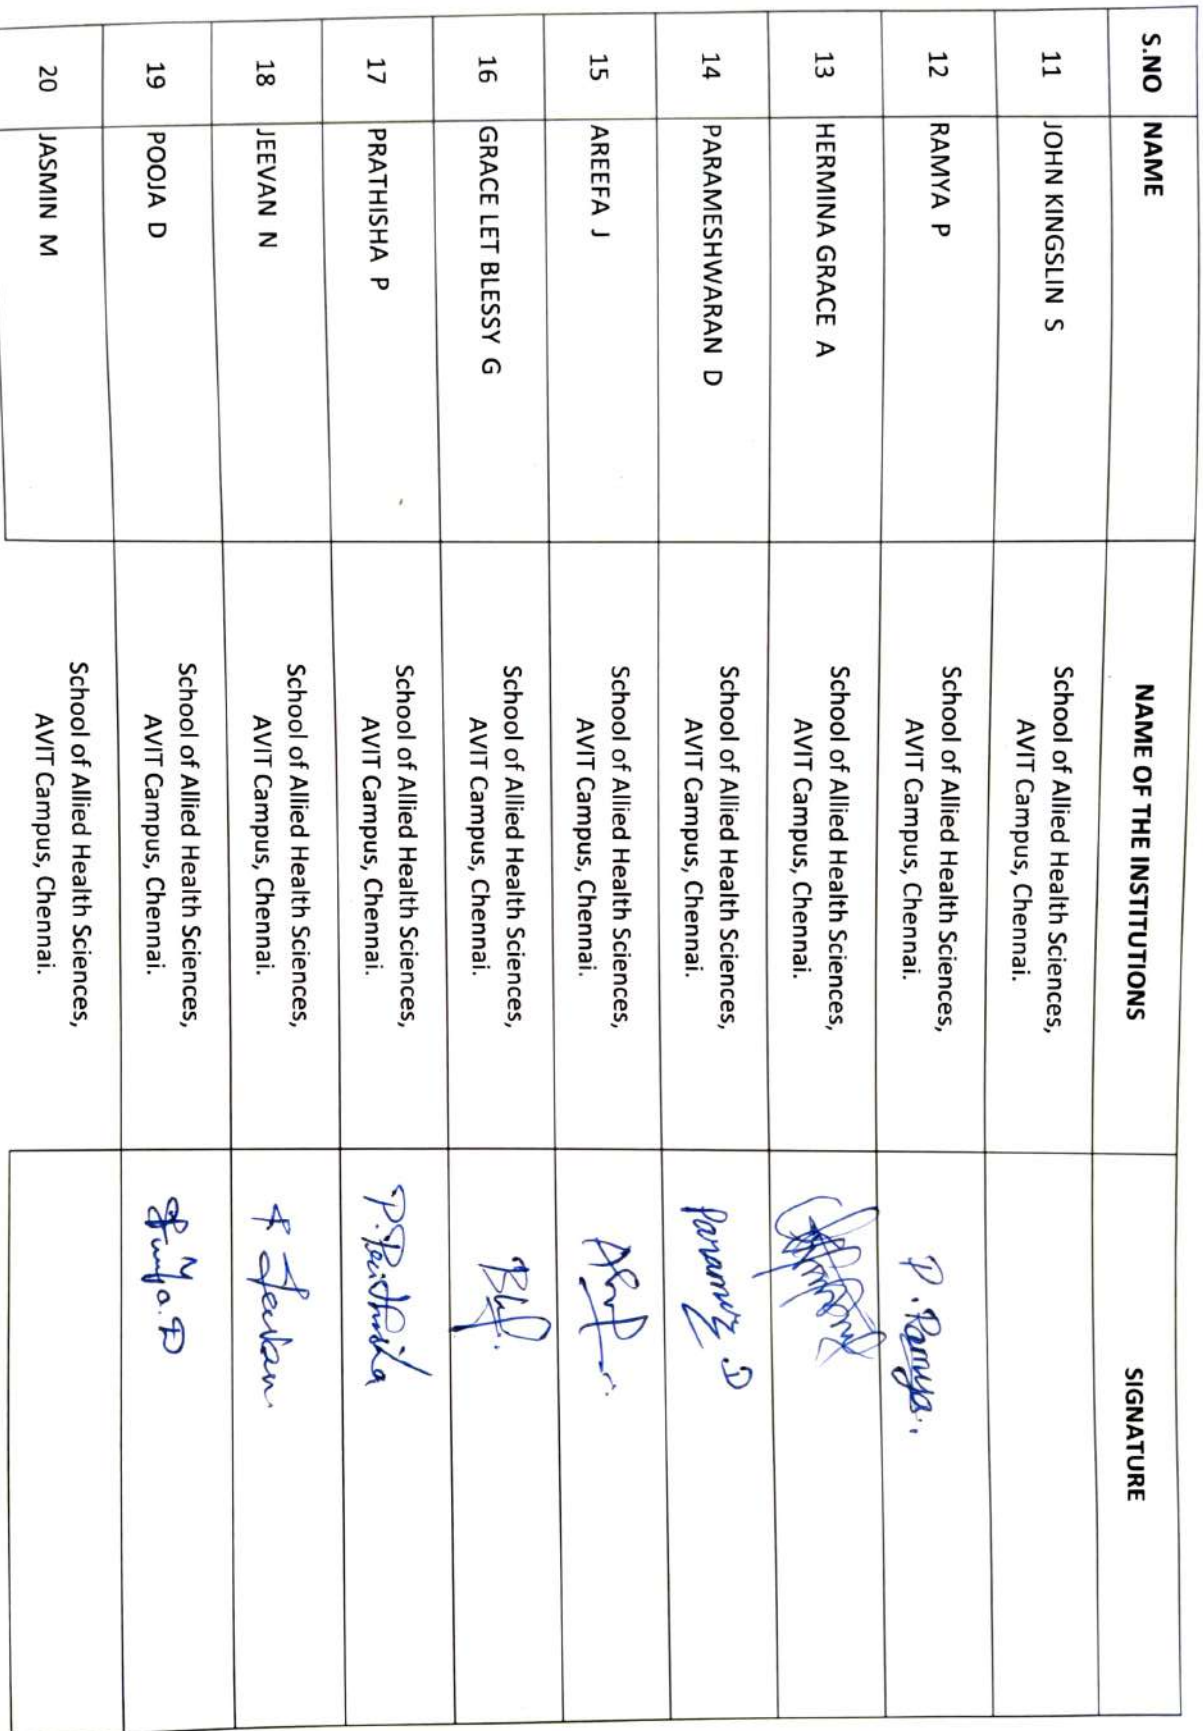 S.NO NAME NAME OF THE INSTITUTIONS SIGNATURE
11 JOHN KINGSLIN S School of Allied Health Sciences,
AVIT Campus, Chennai.
12 RAMYA P School of Allied Health Sciences, P. Ramya.
AVIT Campus, Chennai.
13 HERMINA GRACE A School of Allied Health Sciences,
AVIT Campus, Chennai.
14 PARAMESHWARAN D School of Allied Health Sciences,
AVIT Campus, Chennai.
15 AREEFA J School of Allied Health Sciences,
AVIT Campus, Chennai.
16 GRACE LET BLESSY G School of Allied Health Sciences,
AVIT Campus, Chennai.
17 PRATHISHA P School of Allied Health Sciences,
AVIT Campus, Chennai.
18 JEEVAN N School of Allied Health Sciences,
AVIT Campus, Chennai.
19 POOJA D School of Allied Health Sciences,
AVIT Campus, Chennai.
20 JASMIN M School of Allied Health Sciences,
AVIT Campus, Chennai.